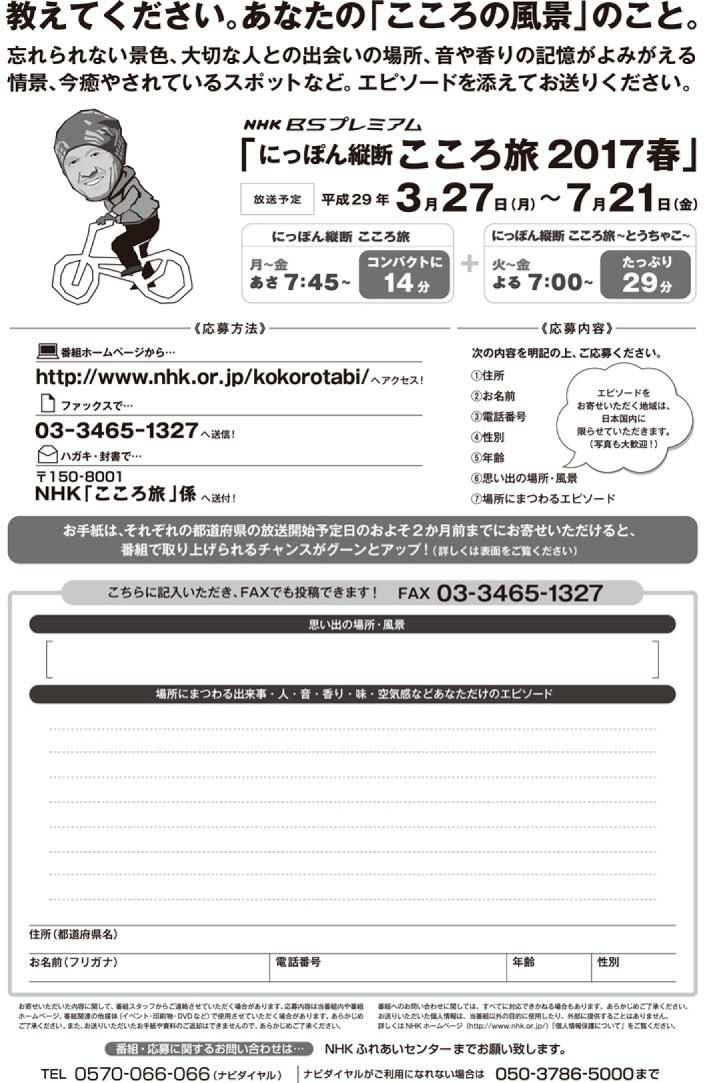 教えてください。あなたの「こころの風景」のこと。
忘れられない景色、大切な人との出会いの場所、音や香りの記憶がよみがえる
情景、今癒やされているスポットなど。エピソードを添えてお送りください。
NHK BSプレミアム
「にっぽん縦断 こころ旅 2017春」
放送予定 平成29年 3月27日(月)〜7月21日(金)
にっぽん縦断 こころ旅
月〜金
あさ 7:45〜
コンパクトに
14分
+
にっぽん縦断 こころ旅〜とうちゃこ〜
火〜金
よる 7:00〜
たっぷり
29分
《応募方法》
番組ホームページから…
http://www.nhk.or.jp/kokorotabi/へアクセス!
ファックスで…
03-3465-1327へ送信!
ハガキ・封書で…
〒150-8001
NHK「こころ旅」係 へ送付!
《応募内容》
次の内容を明記の上、ご応募ください。
①住所
②お名前
③電話番号
④性別
⑤年齢
⑥思い出の場所・風景
⑦場所にまつわるエピソード
エピソードを
お寄せいただく地域は、
日本国内に
限らせていただきます。
(写真も大歓迎!)
お手紙は、それぞれの都道府県の放送開始予定日のおよそ2か月前までにお寄せいただけると、
番組で取り上げられるチャンスがグーンとアップ!(詳しくは表面をご覧ください)
こちらに記入いただき、FAXでも投稿できます! FAX 03-3465-1327
思い出の場所・風景
場所にまつわる出来事・人・音・香り・味・空気感などあなただけのエピソード
住所(都道府県名)
お名前(フリガナ) 電話番号 年齢 性別
お寄せいただいた内容に関して、番組スタッフからご連絡させていただく場合があります。応募内容は当番組内や番組
ホームページ、番組関連の他媒体(イベント・印刷物・DVDなど)で使用させていただく場合があります。あらかじめ
ご了承ください。また、お送りいただいたお手紙や資料のご返却はできませんので、あらかじめご了承ください。
番組へのお問い合わせに関しては、すべてに対応できかねる場合もあります。あらかじめご了承ください。
お送りいただいた個人情報は、当番組以外の目的に使用したり、外部に提供することはありません。
詳しくはNHKホームページ(http://www.nhk.or.jp/)「個人情報保護について」をご覧ください。
番組・応募に関するお問い合わせは… NHKふれあいセンターまでお願い致します。
TEL 0570-066-066(ナビダイヤル) ナビダイヤルがご利用になれない場合は 050-3786-5000まで